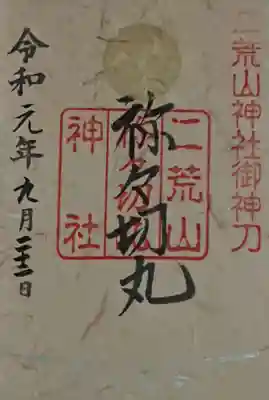 二荒山神社御神刀
二荒山
神社
祢々切丸
令和元年九月二十二日